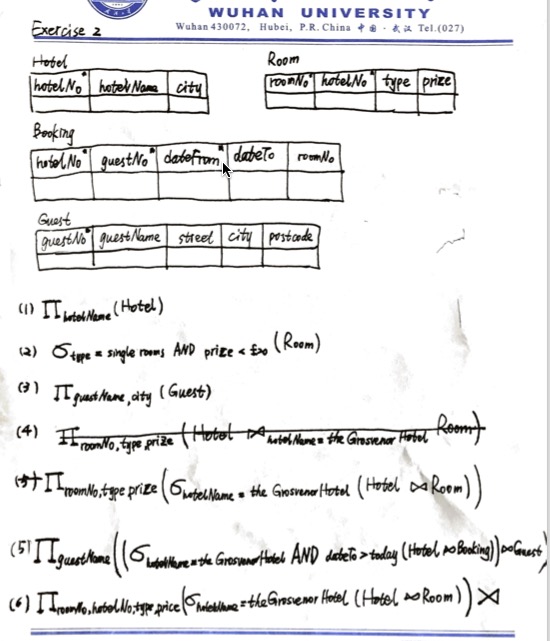 WUHAN UNIVERSITY
Wuhan 430072, Hubei, P.R. China 中国·武汉 Tel.(027)
Exercise 2
Hotel
hotelNo* hotelName city
Room
roomNo* hotelNo* type prize
Booking
hotelNo* guestNo* dateFrom* dateTo roomNo
Guest
guestNo* guestName street city postcode
(1) Π hotelName (Hotel)
(2) σ type = single rooms AND prize < £20 (Room)
(3) Π guestName, city (Guest)
(4) Π roomNo, type, prize (Hotel ⋈ hotelName = the Grosvenor Hotel Room)
Π roomNo, type prize (σ hotelName = the Grosvenor Hotel (Hotel ⋈ Room))
(5) Π guestName ((σ hotelName = the Grosvenor Hotel AND dateTo > today (Hotel ⋈ Booking)) ⋈ Guest)
(6) Π roomNo, hotelNo, type, price (σ hotelName = the Grosvenor Hotel (Hotel ⋈ Room)) ⋈